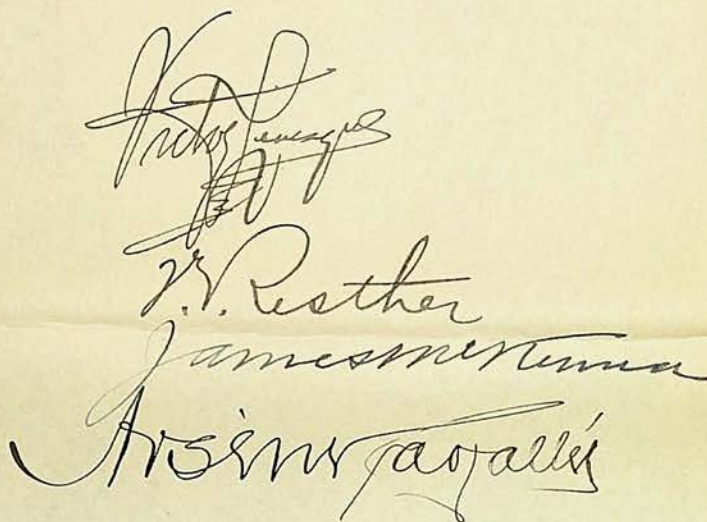 Victor Levesque
J. Z. Resther
James McKenna
Arsène Lavallée